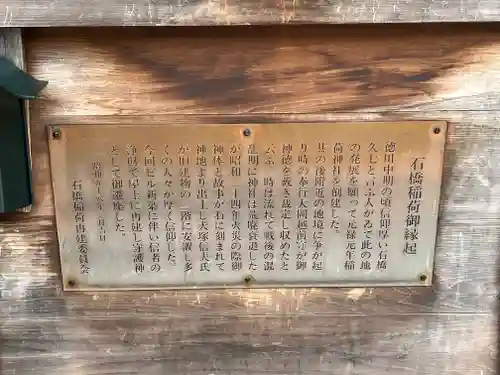 石橋稲荷御縁起
徳川中期の頃信仰厚い石橋
久七と言ふ人があて此の地
の発展を願って元禄元年稲
荷神社を創建した。
其の後附近の地境に争が起
り時の奉行大岡越前守が御
神徳を戴き裁定し収めたと
云ふ 時は流れて戦後の混
乱期に神社は荒廃衰退した
が昭和二十四年火災の際御
神体と故事が石に刻まれて
神地より出土し大塚信夫氏
が旧建物の二階に安置し多
くの人々が厚く信仰した。
今回ビル新築に伴い信者の
浄財で屋上に再建し守護神
として御遷座した。
昭和五十八年二月吉日
石橋稲荷再建委員会